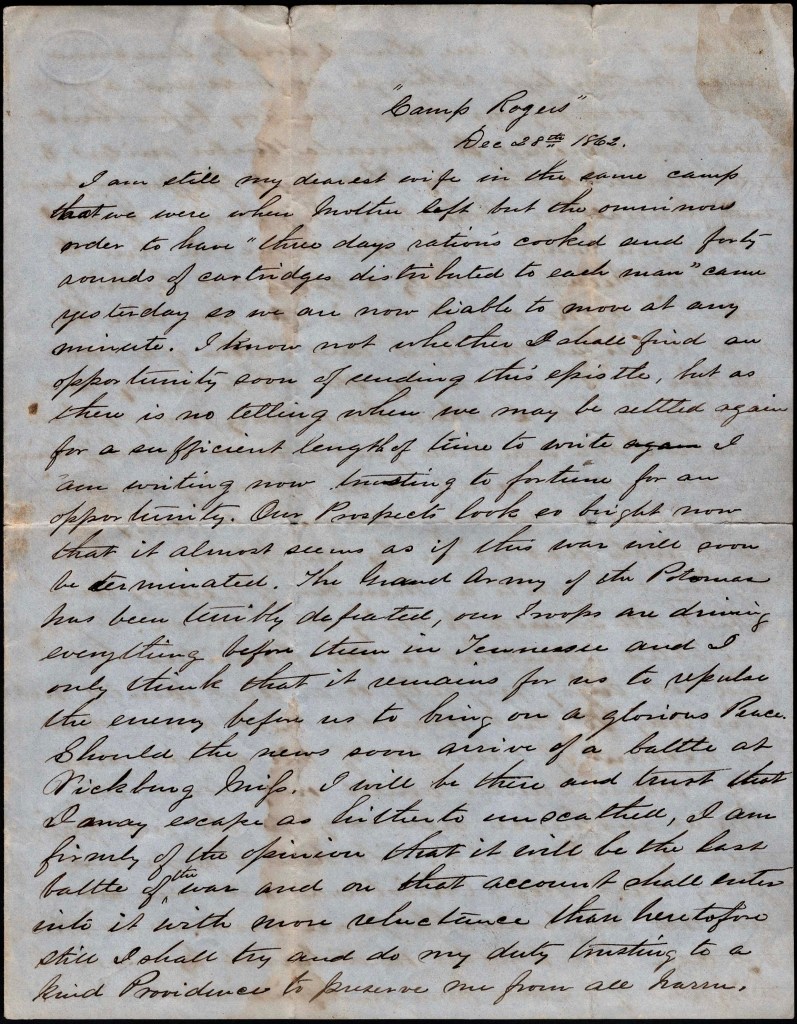 "Camp Rogers"
Dec 28th 1862.
I am still my dearest wife in the same camp
that we were when Mother left but the ominous
order to have "three days rations cooked and forty
rounds of cartridges distributed to each man" came
yesterday so we are now liable to move at any
minute. I know not whether I shall find an
opportunity soon of sending this epistle, but as
there is no telling when we may be settled again
for a sufficient length of time to write again I
am writing now trusting to fortune for an
opportunity. Our Prospects look so bright now
that it almost seems as if this war will soon
be terminated. The Grand Army of the Potomac
has been terribly defeated, our Troops are driving
everything before them in Tennessee and I
only think that it remains for us to repulse
the enemy before us to bring on a glorious Peace.
Should the news soon arrive of a battle at
Vicksburg Miss. I will be there and trust that
I may escape as hitherto unscathed, I am
firmly of the opinion that it will be the last
battle of the war and on that account shall enter
into it with more reluctance than heretofore
still I shall try and do my duty trusting to a
kind Providence to preserve me from all harm.